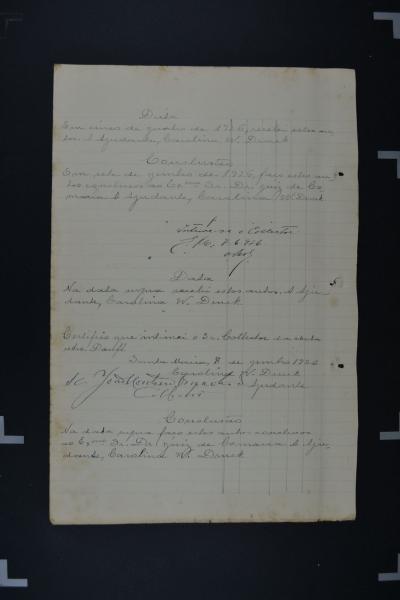 Data
Em cinco de junho de 1926, recebi estes au-
tos. A Ajudante, Carolina W. Druck
Conclusão
Em sete de junho de 1926, faço estes au-
tos conclusos ao Exmo Sr. Dr. Juiz de Co-
marca. A Ajudante, Carolina W. Druck
Intime-se o Collector
8.6.926
Data
5
Na data supra recebi estes autos. A Aju-
dante, Carolina W. Druck
Certifico que intimei o Sr. Collector
dou fé.
8 de junho 1926
Carolina W. Druck
Ajudante
Conclusão
Na data supra faço estes autos conclusos
ao Exmo Sr. Dr. Juiz de Comarca. A Aju-
dante, Carolina W. Druck